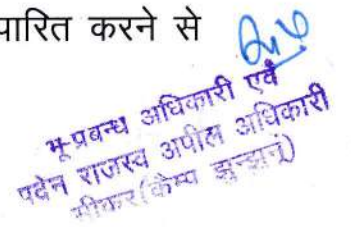 पारित करने से
भू-प्रबन्ध अधिकारी एवं
पदेन राजस्व अपील अधिकारी
सीकर(कैम्प झुन्झुनू)